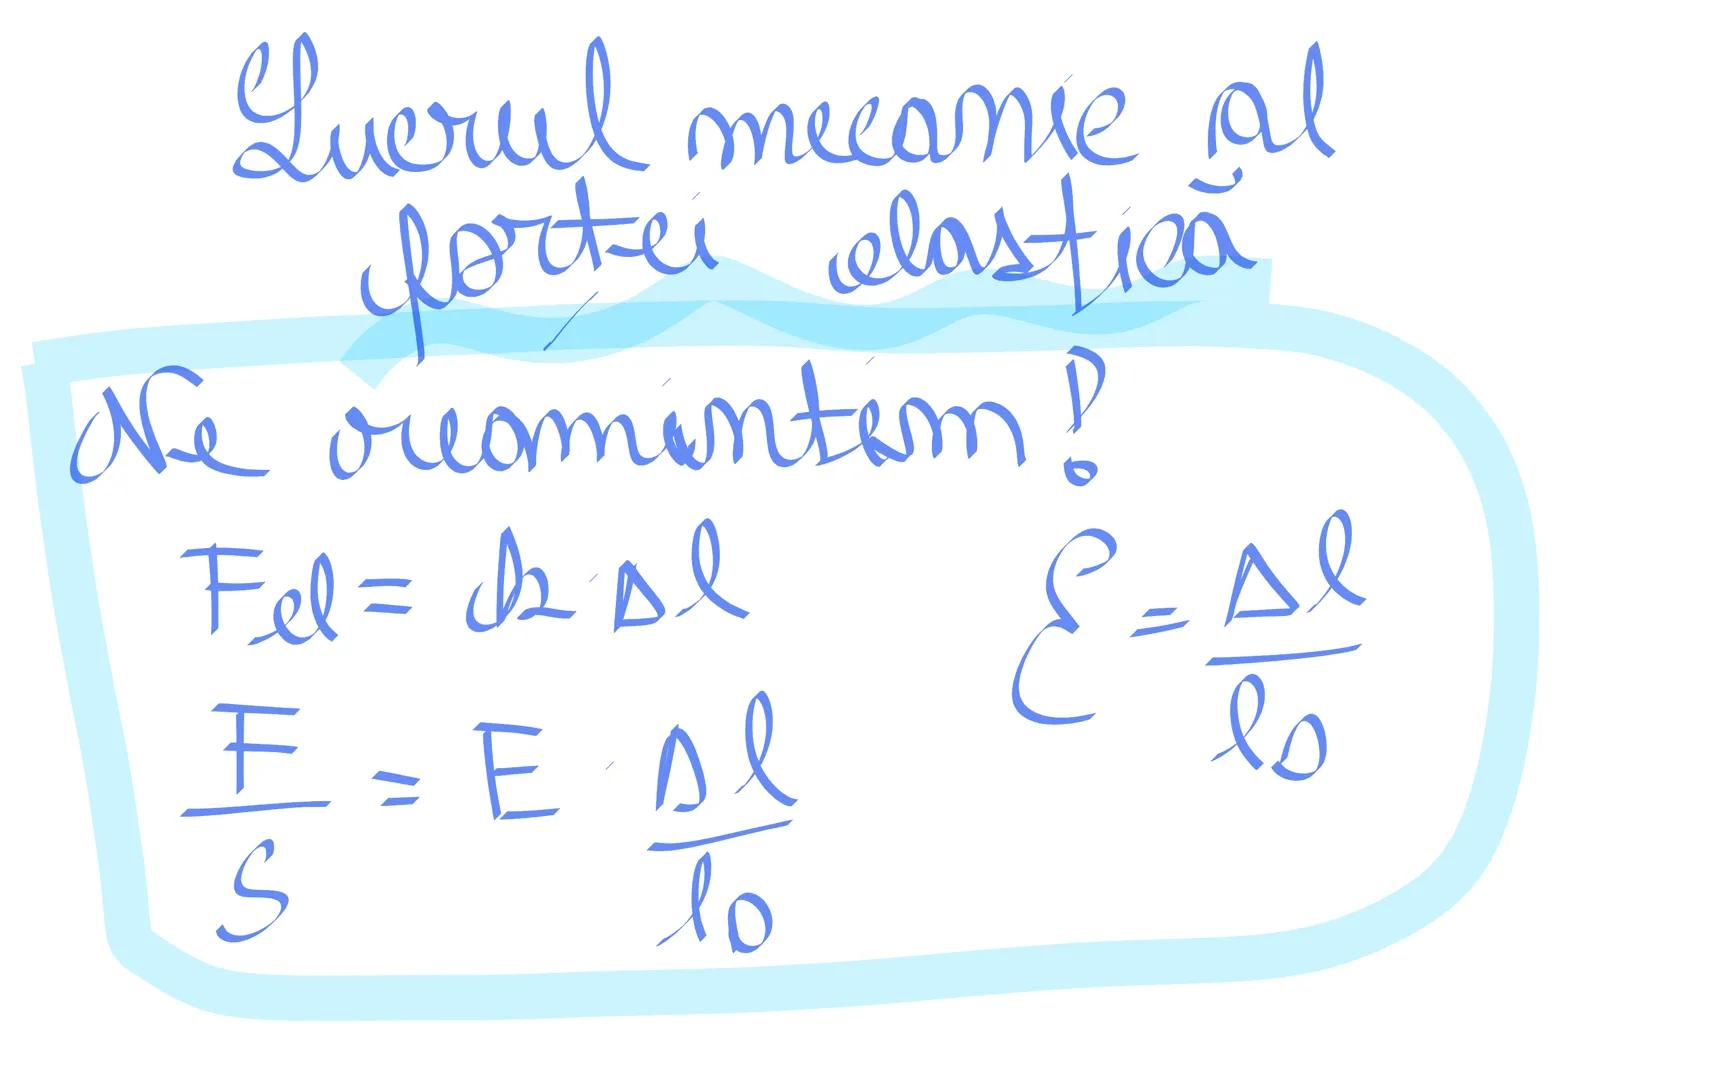 Lucrul mecanic al
forței elastică
Ne reamintim!
Fel = k · Δl
ε = Δl / l0
F / S = E · Δl / l0